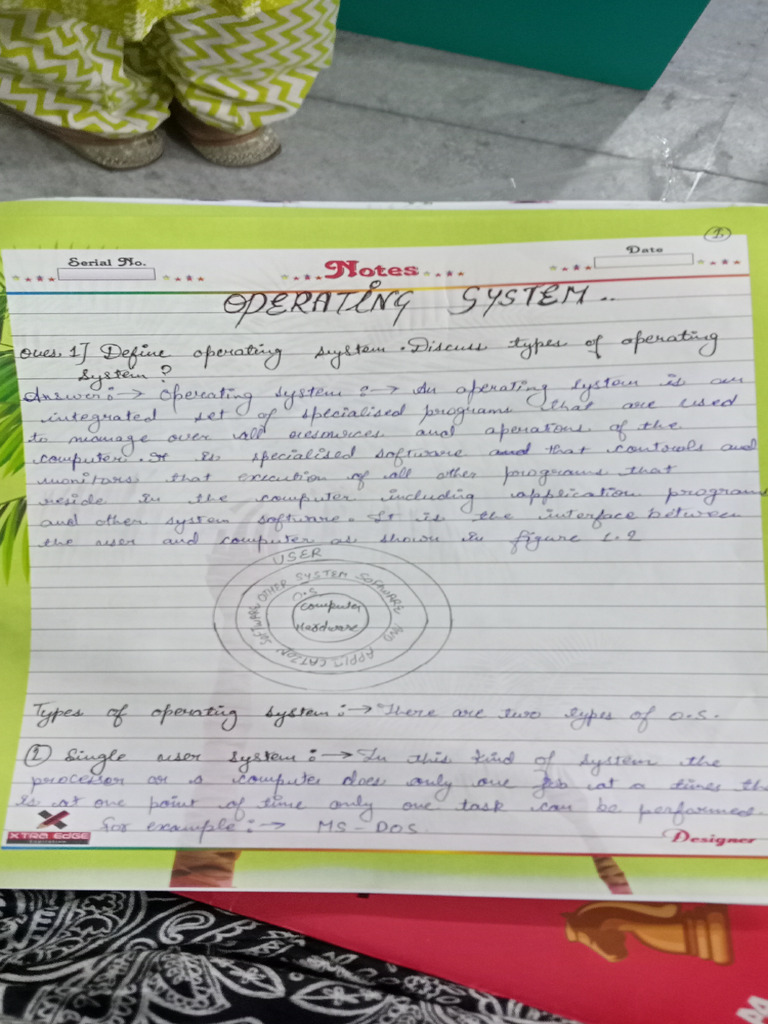 1.
Serial No.
Notes
Date
OPERATING SYSTEM..
Ques.1] Define operating system. Discuss types of operating
system?
Answer:→ Operating system:→ An operating system is an
integrated set of specialised programs that are used
to manage over all resources and operations of the
computer. It is specialised software and that controls and
monitors that execution of all other programs that
reside in the computer including application programs
and other system software. It is the interface between
the user and computer as shown in figure 1.2
USER
OTHER SYSTEM SOFTWARE AND APPLICATION SOFTWARE
O.S
Computer
Hardware
Types of operating system:→ There are two types of O.S.
Single user system:→ In this kind of system the
processor or a computer does only one job at a time
is at one point of time only one task can be performed.
For example:→ MS-DOS.
XTRA EDGE
Designer